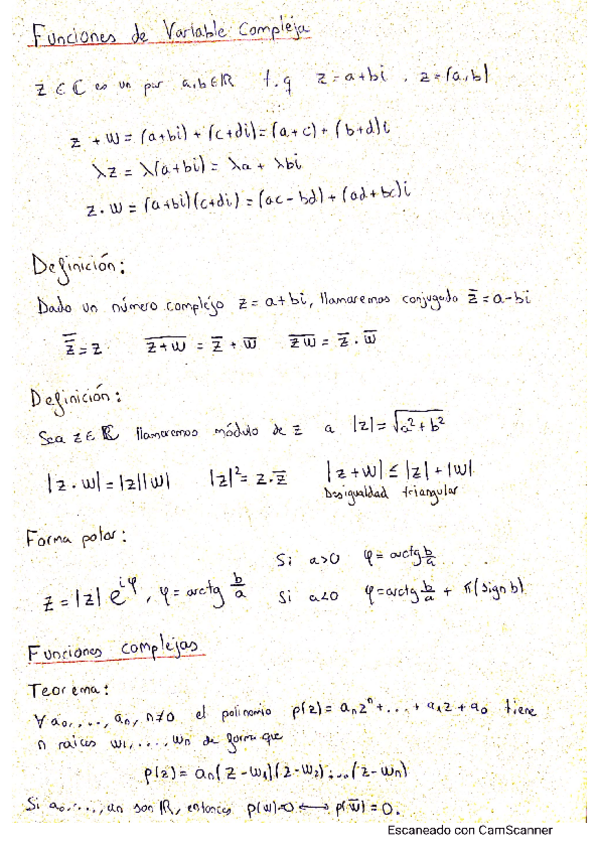 Funciones de Variable Compleja
z ∈ ℂ es un par a,b∈ℝ t.q z=a+bi , z=(a,b)
z + w = (a+bi) + (c+di) = (a+c) + (b+d)i
λz = λ(a+bi) = λa + λbi
z·w = (a+bi)(c+di) = (ac-bd) + (ad+bc)i
Definición:
Dado un número complejo z = a+bi, llamaremos conjugado z̄ = a-bi
z̿ = z   \overline{z+w} = z̄ + w̄   \overline{zw} = z̄ · w̄
Definición:
Sea z ∈ ℂ llamaremos módulo de z a |z| = √(a²+b²)
|z·w| = |z||w|   |z|² = z·z̄   |z+w| ≤ |z| + |w|
Desigualdad triangular
Forma polar:
Si a>0 φ = arctg b/a
z = |z| e^{iφ}, φ = arctg b/a   Si a<0 φ = arctg b/a + π(sign b)
Funciones complejas
Teorema:
∀ a₀,...,aₙ, n≠0 el polinomio p(z) = aₙzⁿ + ... + a₁z + a₀ tiene
n raíces w₁,...,wₙ de forma que
p(z) = aₙ(z-w₁)(z-w₂)...(z-wₙ)
Si a₀,...,aₙ son ℝ, entonces p(w)=0 ⟷ p(w̄) = 0.
Escaneado con CamScanner